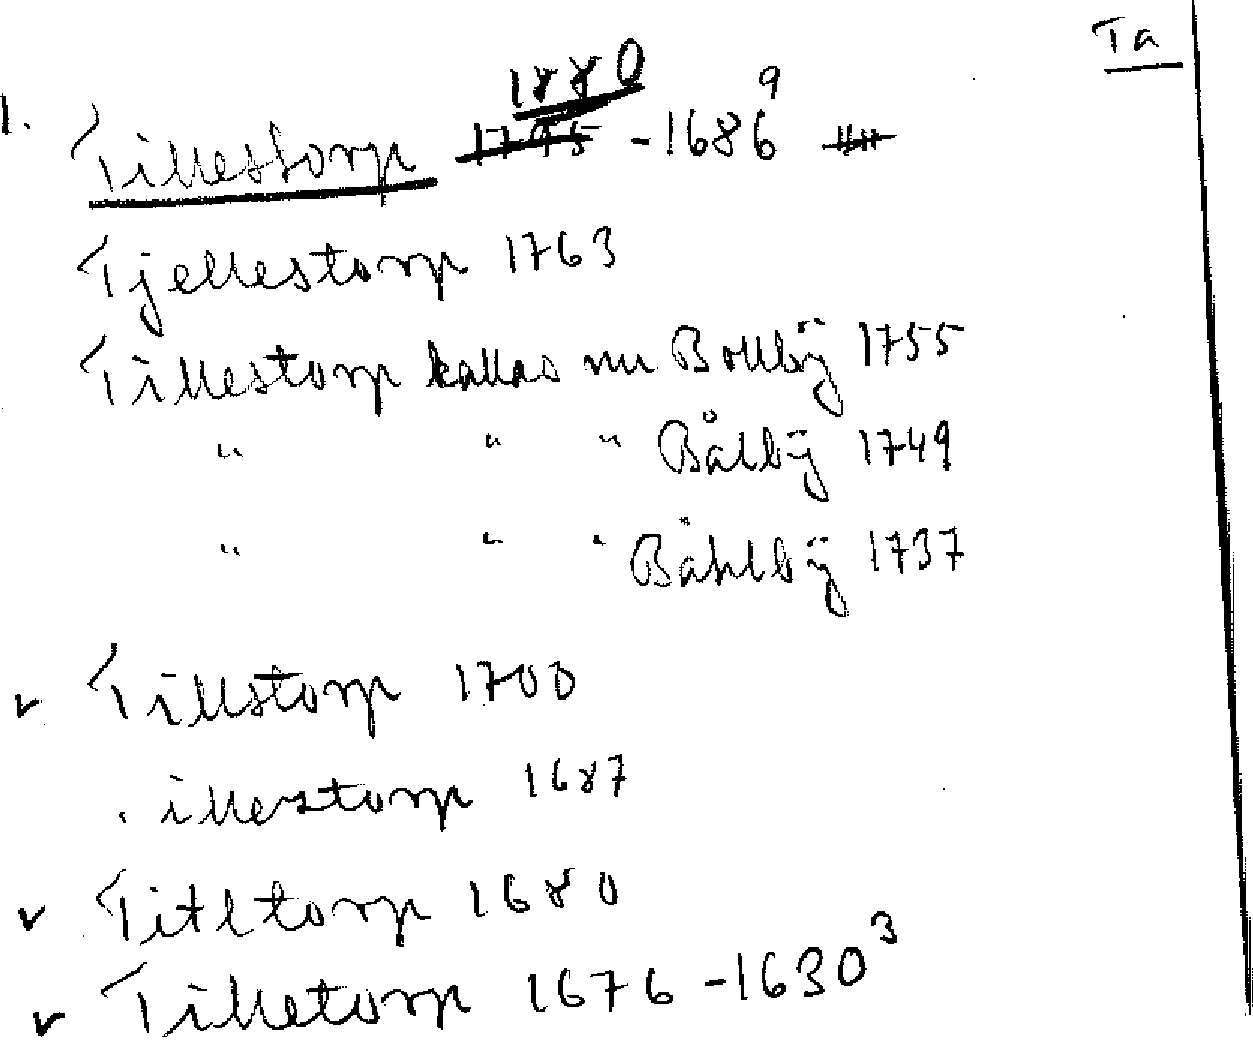 Ta
1880
1. Tillestorp 1795 - 1686 9
Tjellestorp 1763
Tillestorp kallas nu Bollbÿ 1755
" " " Bålbÿ 1749
" " " Båhlbÿ 1737
v Tillstorp 1700
. illerstorp 1687
v Titltorp 1680
v Tilletorp 1676 - 1630 3